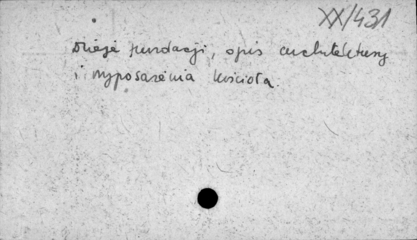 XX/431
dzieje fundacji, opis architektury
i wyposażenia kościoła.